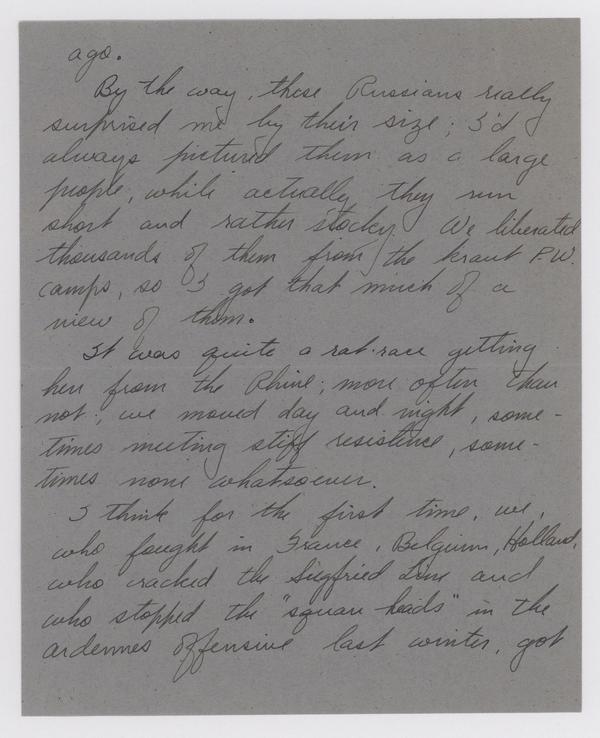 ago.
By the way, these Russians really
surprised me by their size; I'd
always pictured them as a large
people, while actually they run
short and rather stocky. We liberated
thousands of them from the kraut P.W.
camps, so I got that much of a
view of them.
It was quite a rat-race getting
here from the Rhine; more often than
not, we moved day and night, some-
times meeting stiff resistence, some-
times none whatsoever.
I think for the first time, we,
who fought in France, Belgium, Holland,
who cracked the Siegfried Line and
who stopped the "square-heads" in the
ardennes offensive last winter, got